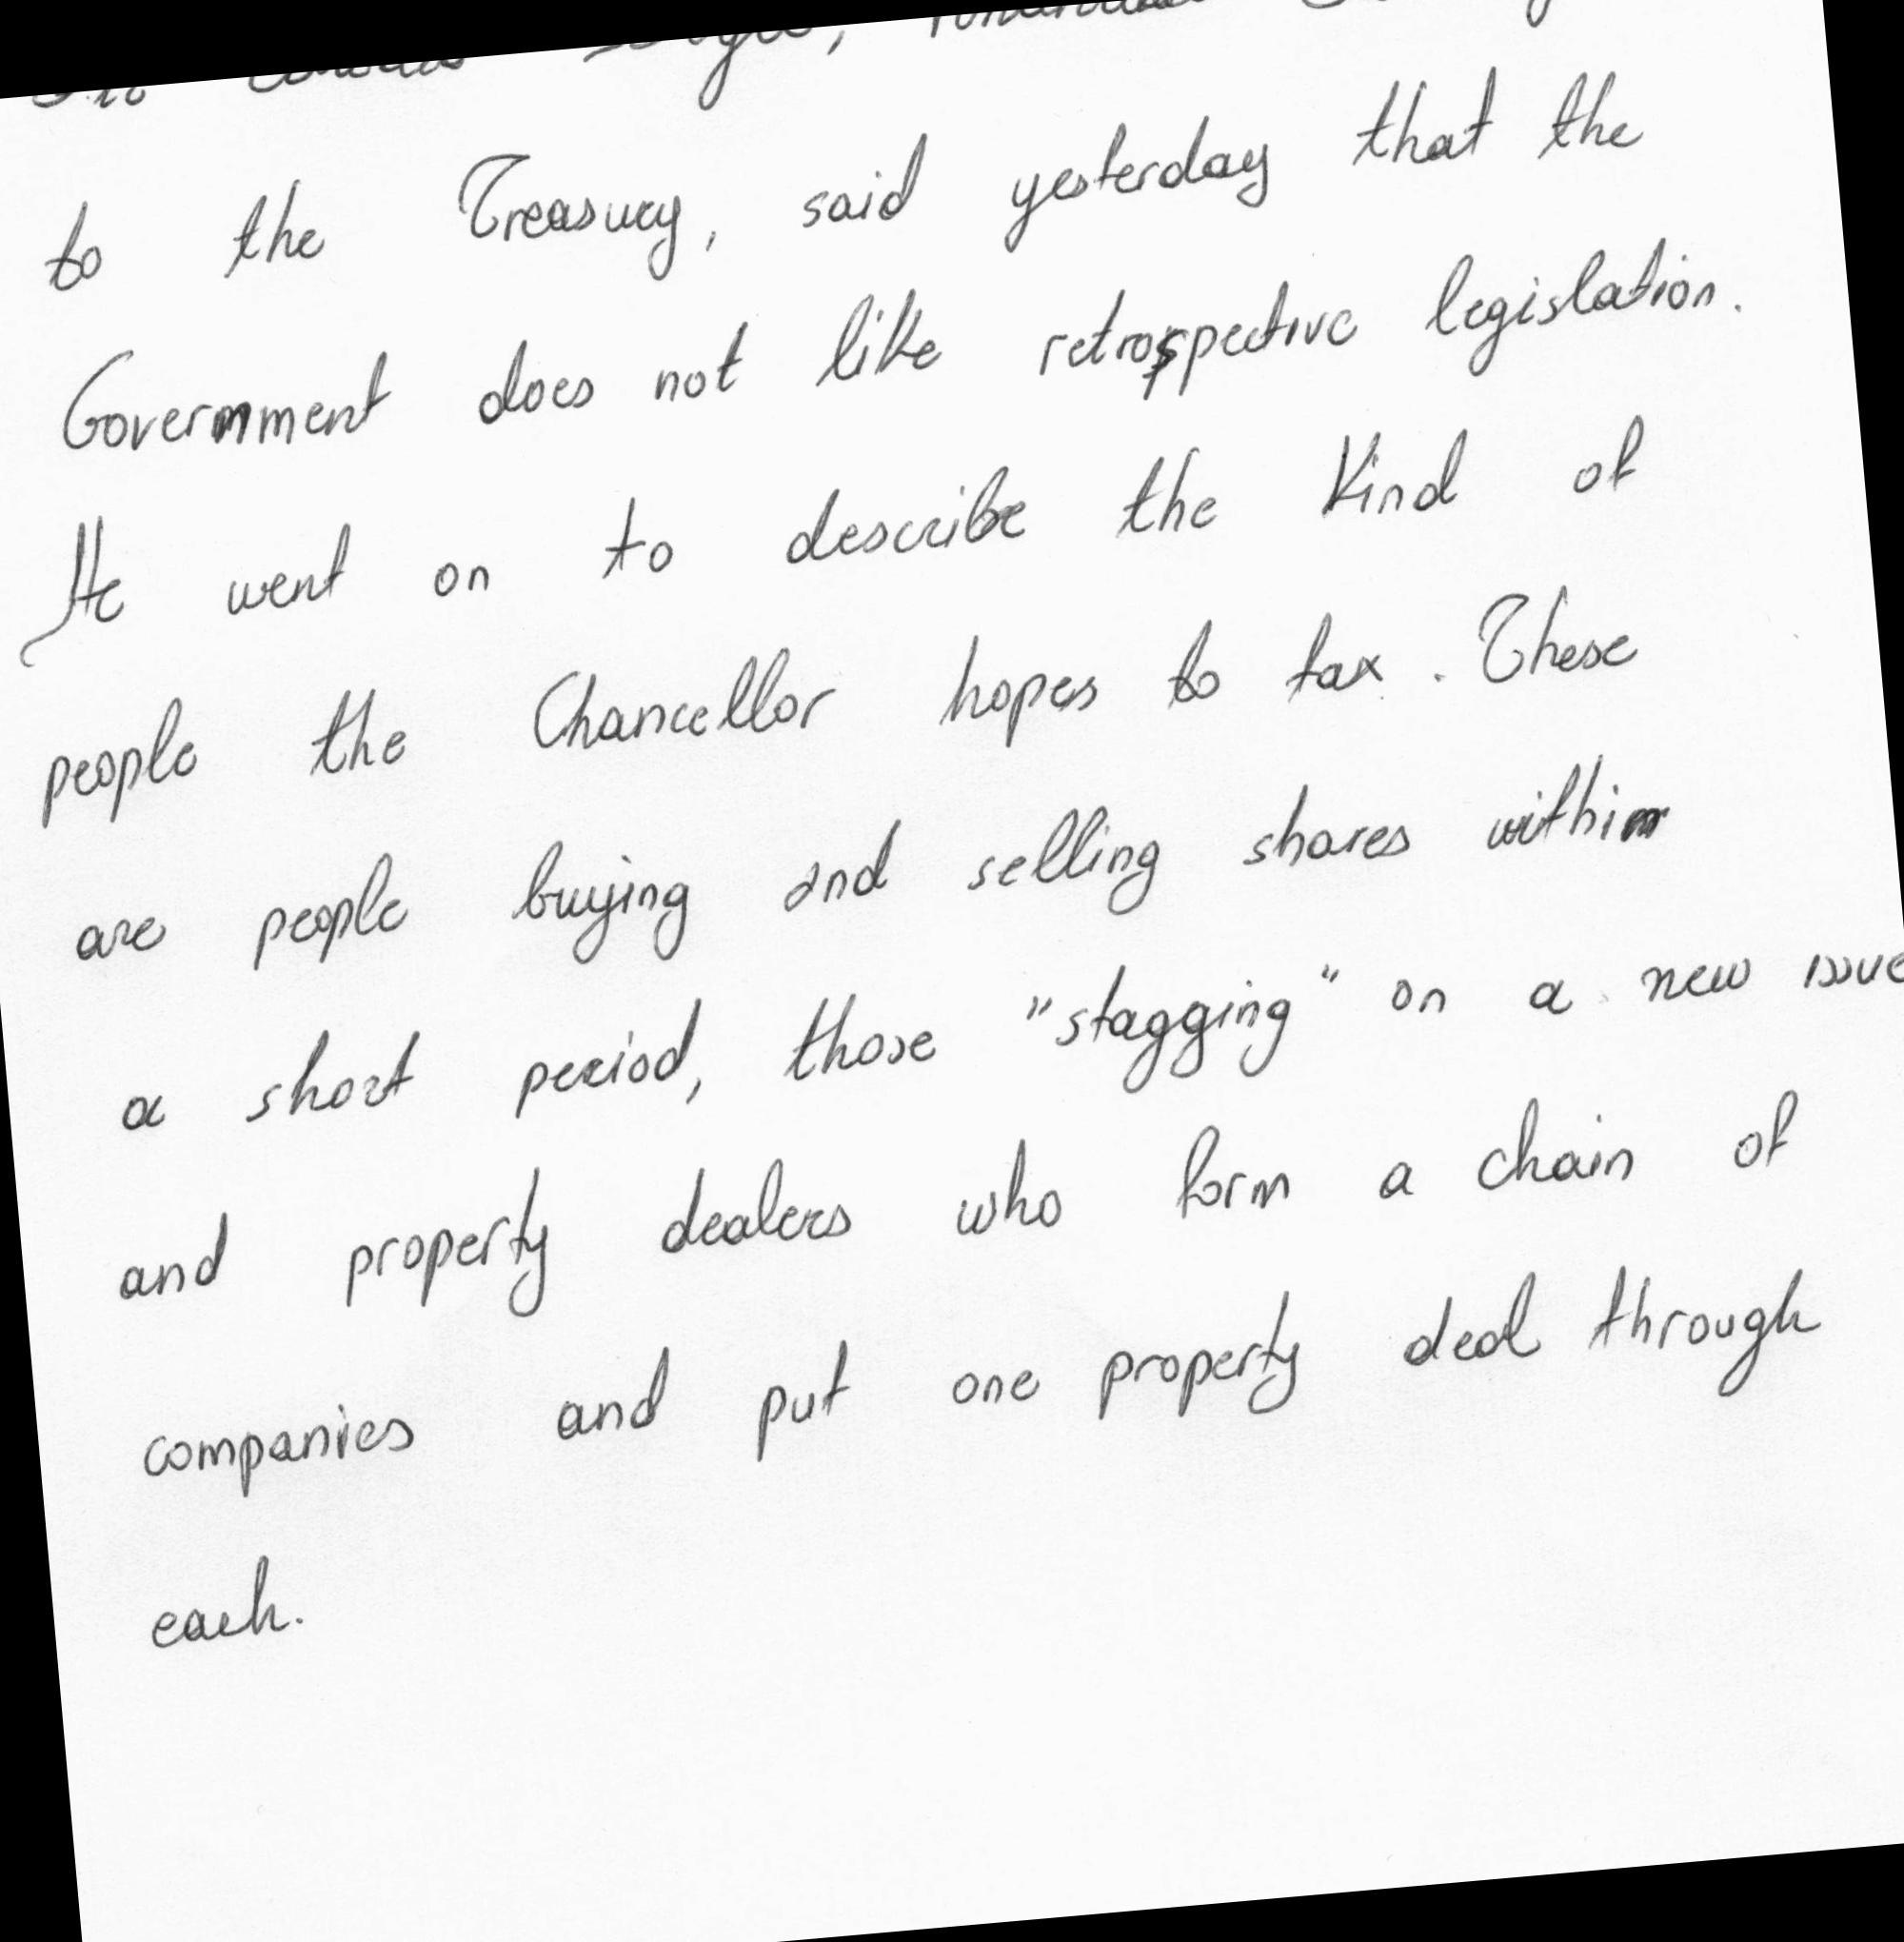 to the Treasury, said yesterday that the
Government does not like retrospective legislation.
He went on to describe the kind of
people the Chancellor hopes to tax. These
are people buying and selling shares within
a short period, those "stagging" on a new issue
and property dealers who form a chain of
companies and put one property deal through
each.